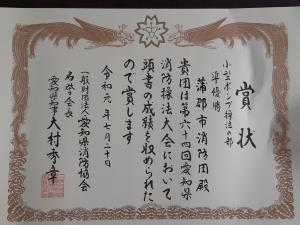 賞状
小型ポンプ操法の部
準優勝
蒲郡市消防団殿
貴団は第六十四回愛知県
消防操法大会において
頭書の成績を収められた
ので賞します
令和元年七月二十日
一般財団法人愛知県消防協会
名誉会長
愛知県知事大村秀章